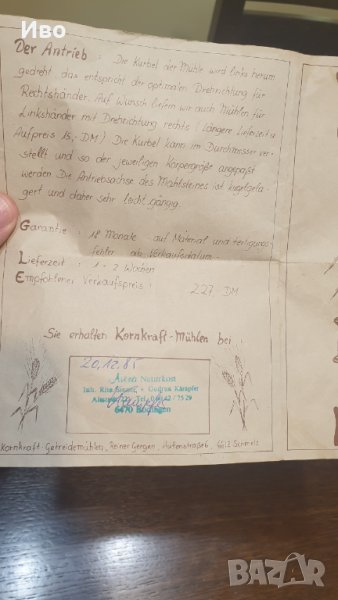 Иво
Der Antrieb : Die Kurbel der Mühle wird links herum
gedreht, das entspricht der optimalen Drehrichtung für
Rechtshänder. Auf Wunsch liefern wir auch Mühlen für
Linkshänder mit Drehrichtung rechts (längere Lieferzeit u.
Aufpreis 15,- DM) Die Kurbel kann im Durchmesser ver-
stellt und so der jeweiligen Körpergröße angepaßt
werden Die Antriebsachse des Mahlsteines ist kugelgela-
gert und daher sehr leicht gängig.
Garantie : 18 Monate auf Material und Fertigungs-
fehler ab Verkaufsdatum.
Lieferzeit : 1 - 2 Wochen
Empfohlener Verkaufspreis : 227 DM
Sie erhalten Kornkraft-Mühlen bei :
20.12.85
Naturkost
Inh. Gudrun Kämpfer
Tel. 7529
6470 Büdingen
Kornkraft-Getreidemühlen, Reiner Gergen, 6612 Schmelz
BAZAR.bg